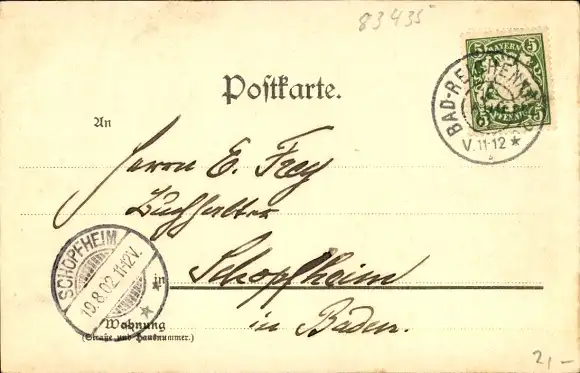 83435
Postkarte.
5 BAYERN 5
5 PFENNIG 5
BAD-REICHENHALL
V. 11-12 ★
An
Herrn E. Frey
Buchhalter
in Schopfheim
in Baden.
SCHOPFHEIM
19.8.02. 11-12V.
Wohnung
(Straße und Hausnummer.)
21,-